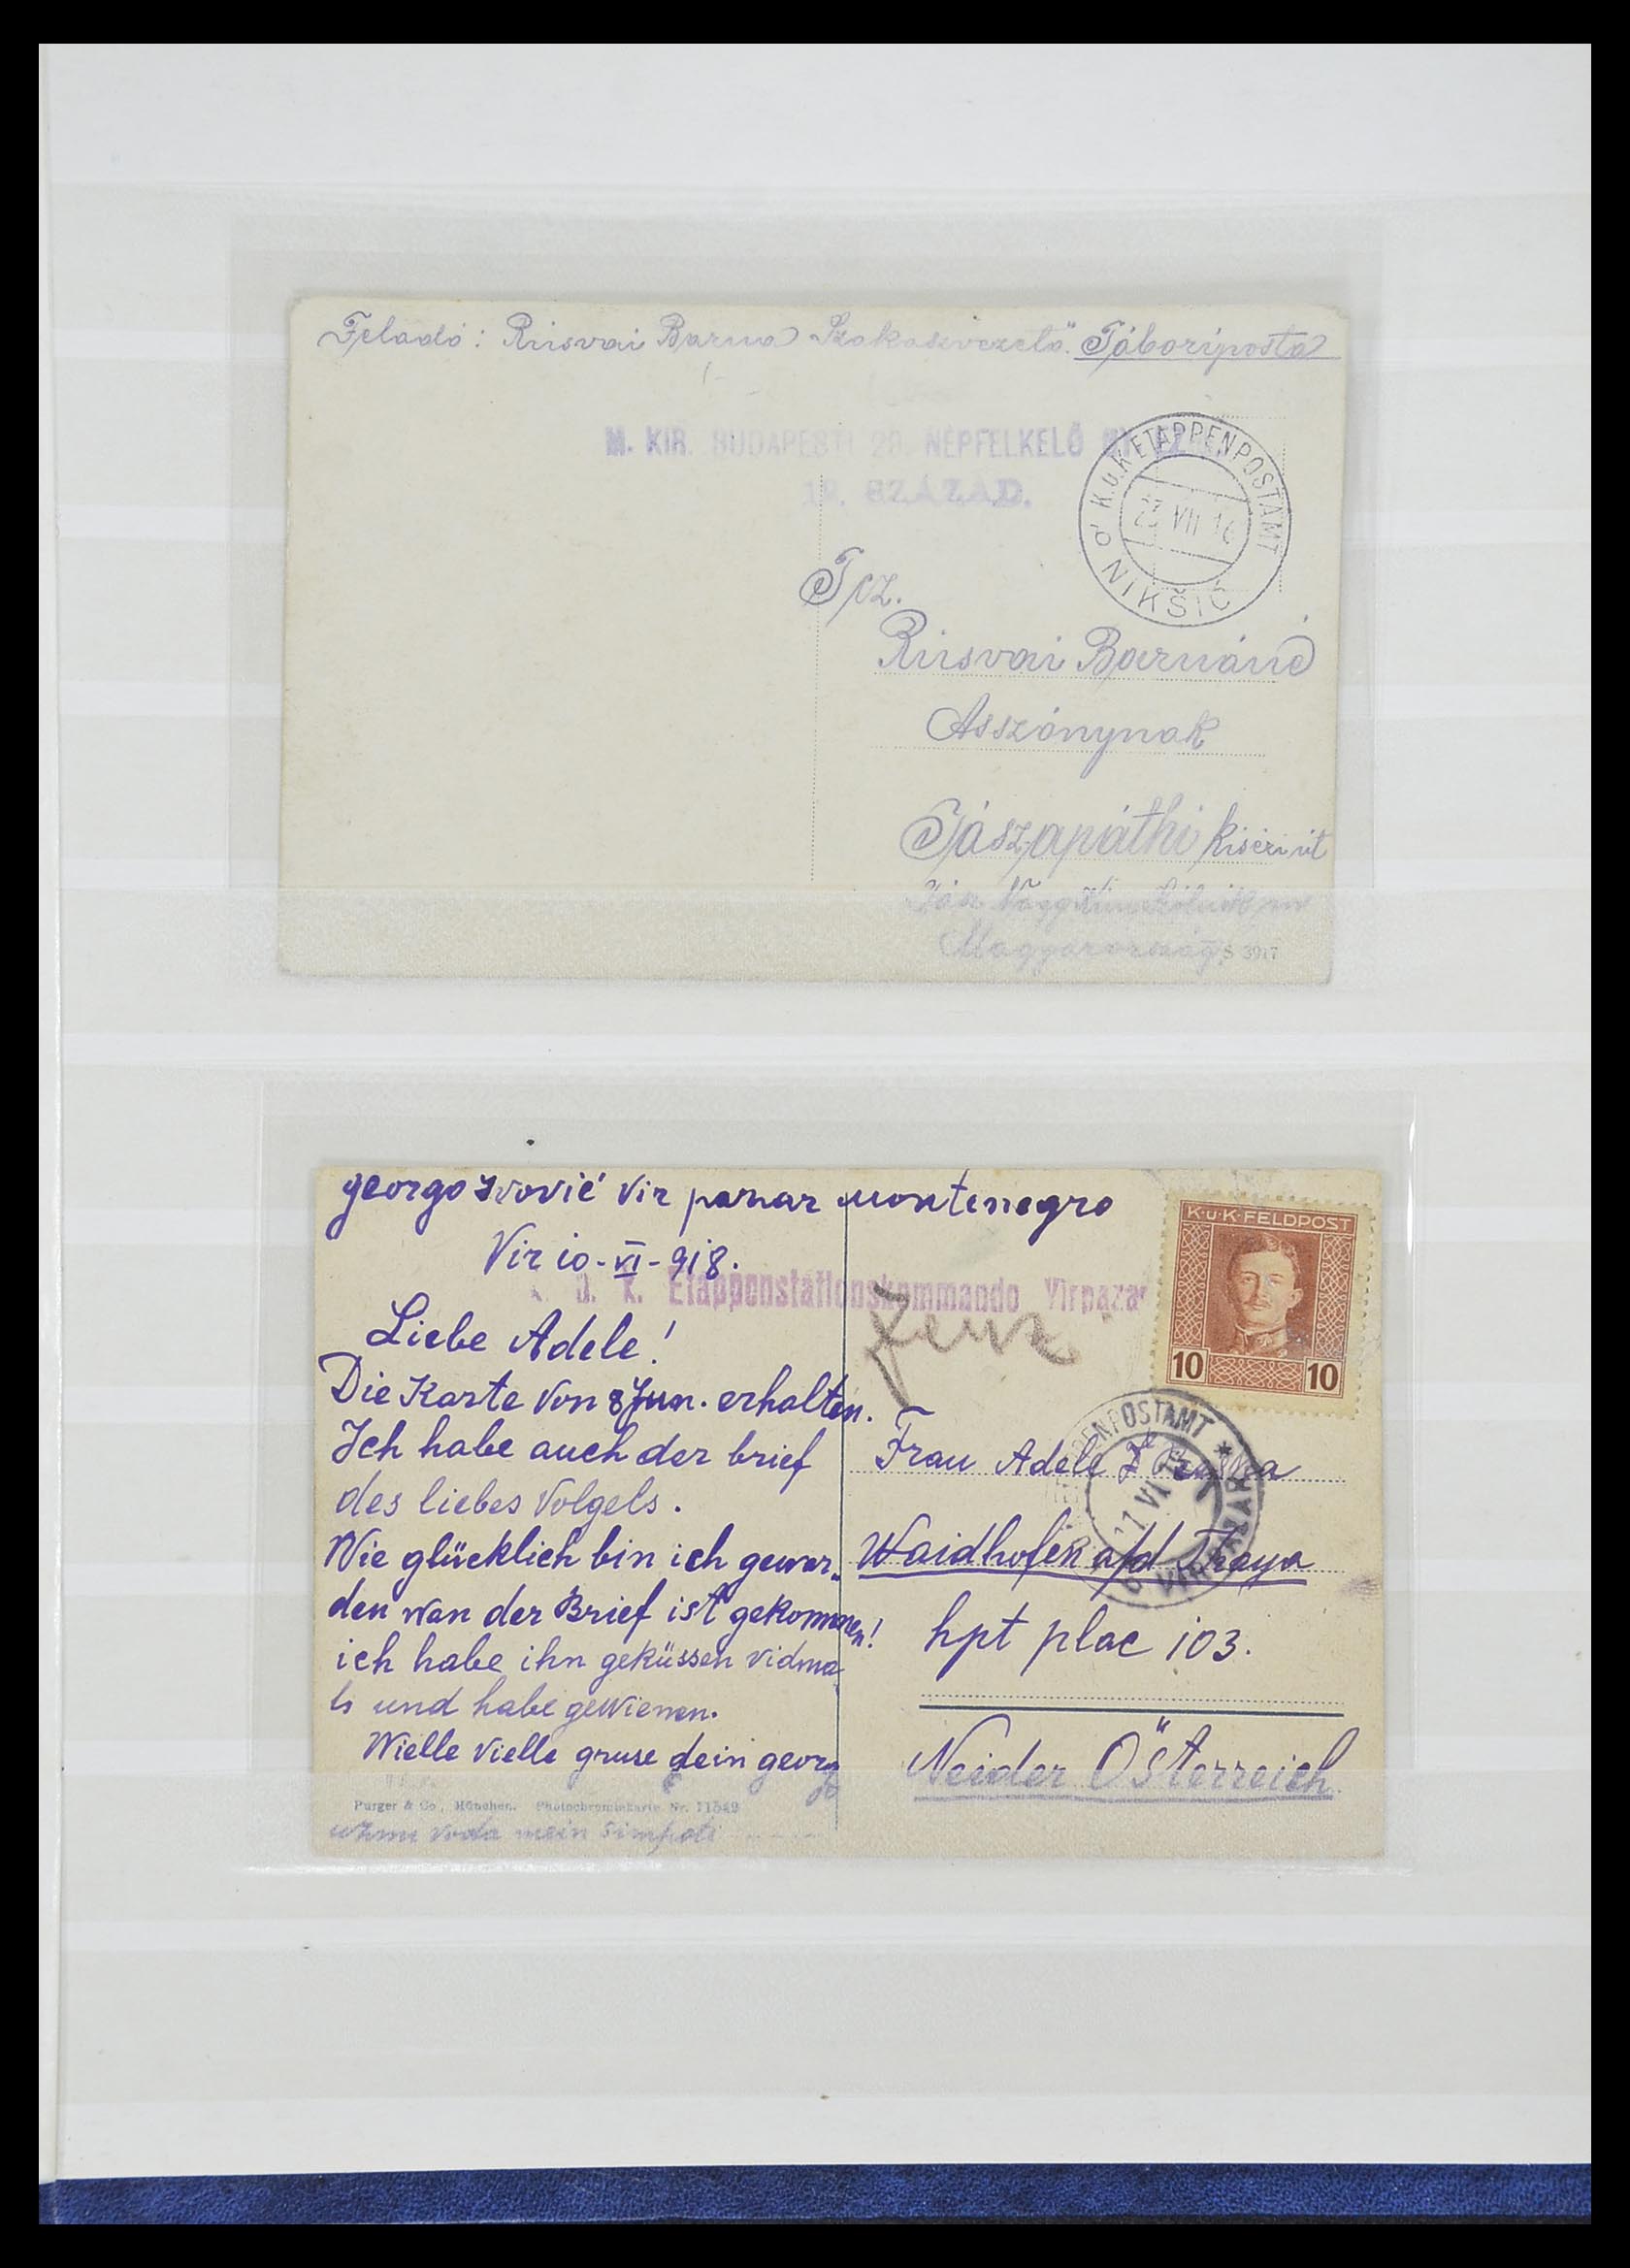 Feladó: Rusvai Barna Szakaszvezető. Táboriposta
M. KIR. BUDAPESTI 29. NÉPFELKELŐ
12. SZÁZAD.
K.u.K. ETAPPENPOSTAMT
VII 16
NIKŠIĆ
Rusvai Barnáné
Asszonynak
Jászapáthi kiséri út
Jász Nagy Kun
Magyarország
S 3917
georgo Ivović Vir pazar montenegro
Vir 10-VI-918.
K. U. K. Etappenstationskommando Virpazar
K·u·K·FELDPOST
10 10
Liebe Adele!
Die Karte Von 8 Jun. erhalten.
Ich habe auch der brief
des liebes Volgels.
Wie glücklich bin ich gewor-
den wan der Brief ist gekommen!
ich habe ihn geküssen vidma
ls und habe gewienen.
Wielle vielle gruse dein georg
Purger & Co., München. Photochromiekarte Nr. 11549
voda mein simpati
ETAPPENPOSTAMT
11 VI
VIRPAZAR
Frau Adele
Waidhofen a/d Thaya
hpt plac 103.
Neider Österreich